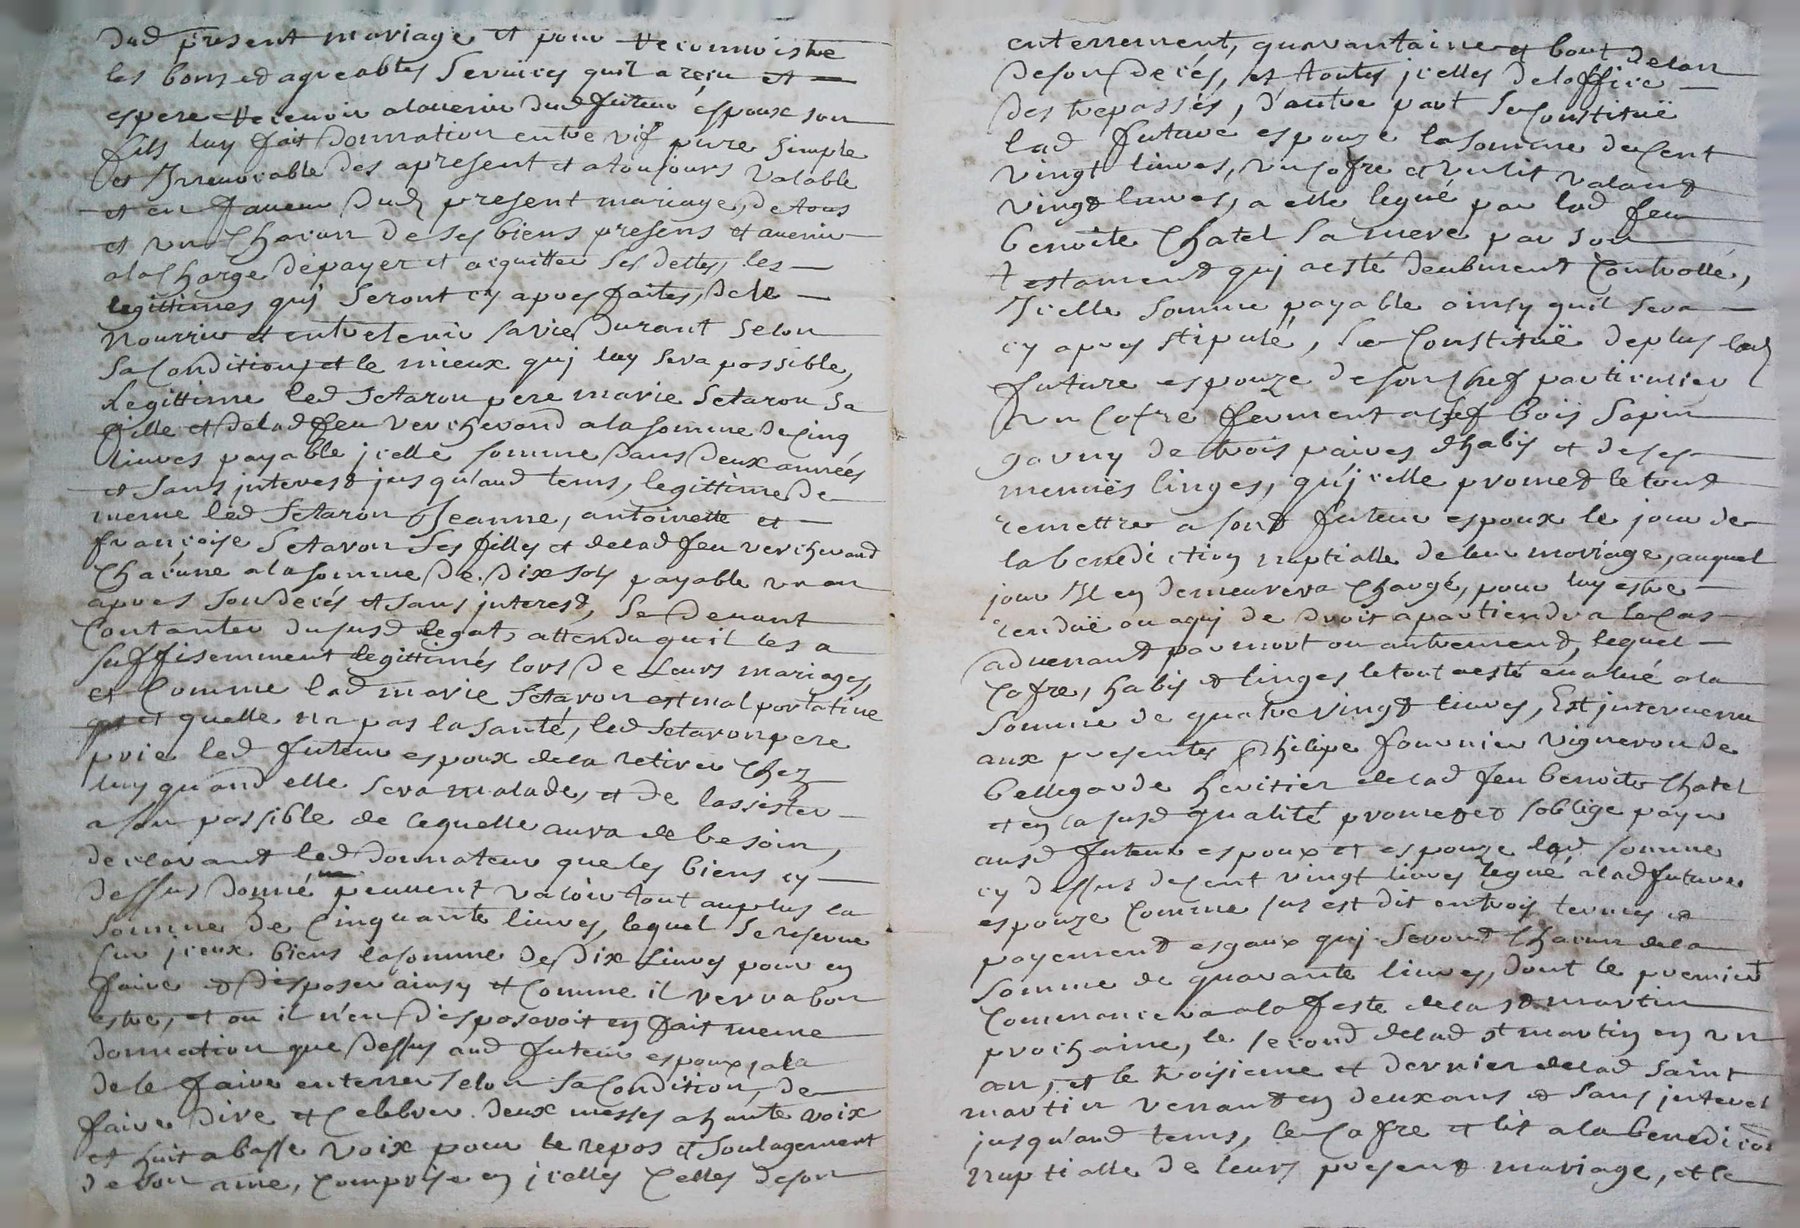 dud present mariage et pour reconnoistre
les bons et agreables services quil a reçu et
espere recevoir alavenir dud futeur espoux son
fils luy fait donnation entre vif pure simple
et Irrevocable des apresent et a toujours valable
et en faveur dud present mariage, de tous
et un chacun de ses biens presens et avenir
ala charge de payer et acquitter ses dettes, les
legittimes quj seront cy apres faites, de le
nourrir et entretenir sa vie durant selon
sa condition et le mieux quj luy sera possible,
Legittime led setaron pere marie setaron sa
fille et delad feu vercherand a la somme de cinq
livres payable jcelle somme dans deux années
et sans jnterest jusqu'aud tems, legittime de
meme led setaron Jeanne, antoinette et
françoise setaron ses filles et delad feu vercherand
chacune a la somme de dix sols payable un an
apres son decés et sans jnterest, se devant
contanter dususd legat, attendu quil les a
suffisemment legittimés lors de leurs mariages,
et comme lad marie setaron est mal portative
et quelle na pas la santé, led setaron pere
prie led futeur espoux dela retirer chez
luy quand elle sera malade, et de lassister
a son possible de cequelle aura de besoin,
declarant led donnateur que les biens cy
dessus donné peuvent valoir tout auplus la
somme de cinquante livres, lequel se reserve
sur jceux biens la somme de dix livres pour en
faire et disposer ainsy et comme il verra bon
estre, et ou il n'en disposeroit en fait meme
donnation que dessus aud futeur espoux, ala
de le faire enterrer selon sa condition, de
faire dire et celebrer deux messes a haute voix
et huit a basse voix pour le repos et soulagement
de son ame, comprise en jcelles celles de son
enterrement, quarantaine et bout de lan
de son decés, et toutes jcelles de loffice
des trepassés, d'autre part se constituë
lad future espouze la somme de cent
vingt livres, un cofre et un lit valant
vingt livres, a elle legué par lad feu
benoite chatel sa mere par son
testament quj a esté deubment controllé,
Jcelle somme payable ainsy quil sera
cy apres stipulé, se constituë de plus lad
future espouze de son chef particulier
un cofre fermant a clef bois sapin
garny de trois paires d'habis et de ses
menuës linges, qu'jcelle promet le tout
remettre a sond futeur espoux le jour de
la benediction nuptialle de leur mariage, auquel
jour Il en demeurera chargé, pour luy estre
renduë ou a quj de droit apartiendra le cas
advenant par mort ou autrement, lequel
cofre, habis et linges le tout a esté evalué a la
somme de quatre vingt livres, Est jntervenu
aux presentes philipe fournier vigneron de
bellegarde heritier delad feu benoite chatel
et en sa susd qualité promet et soblige payer
ausd futeur espoux et espouze lad somme
cy dessus de cent vingt livres legué a lad future
espouze comme sus est dit en trois termes et
payement esgaux quj seront chacun de la
somme de quarante livres, dont le premier
commancera a la feste dela st martin
prochaine, le second delad st martin en un
an, et le troisieme et dernier delad saint
martin venant en deux ans et sans jnterest
jusqu'aud tems, le cofre et lit a la benediction
nuptialle de leurs present mariage, et le